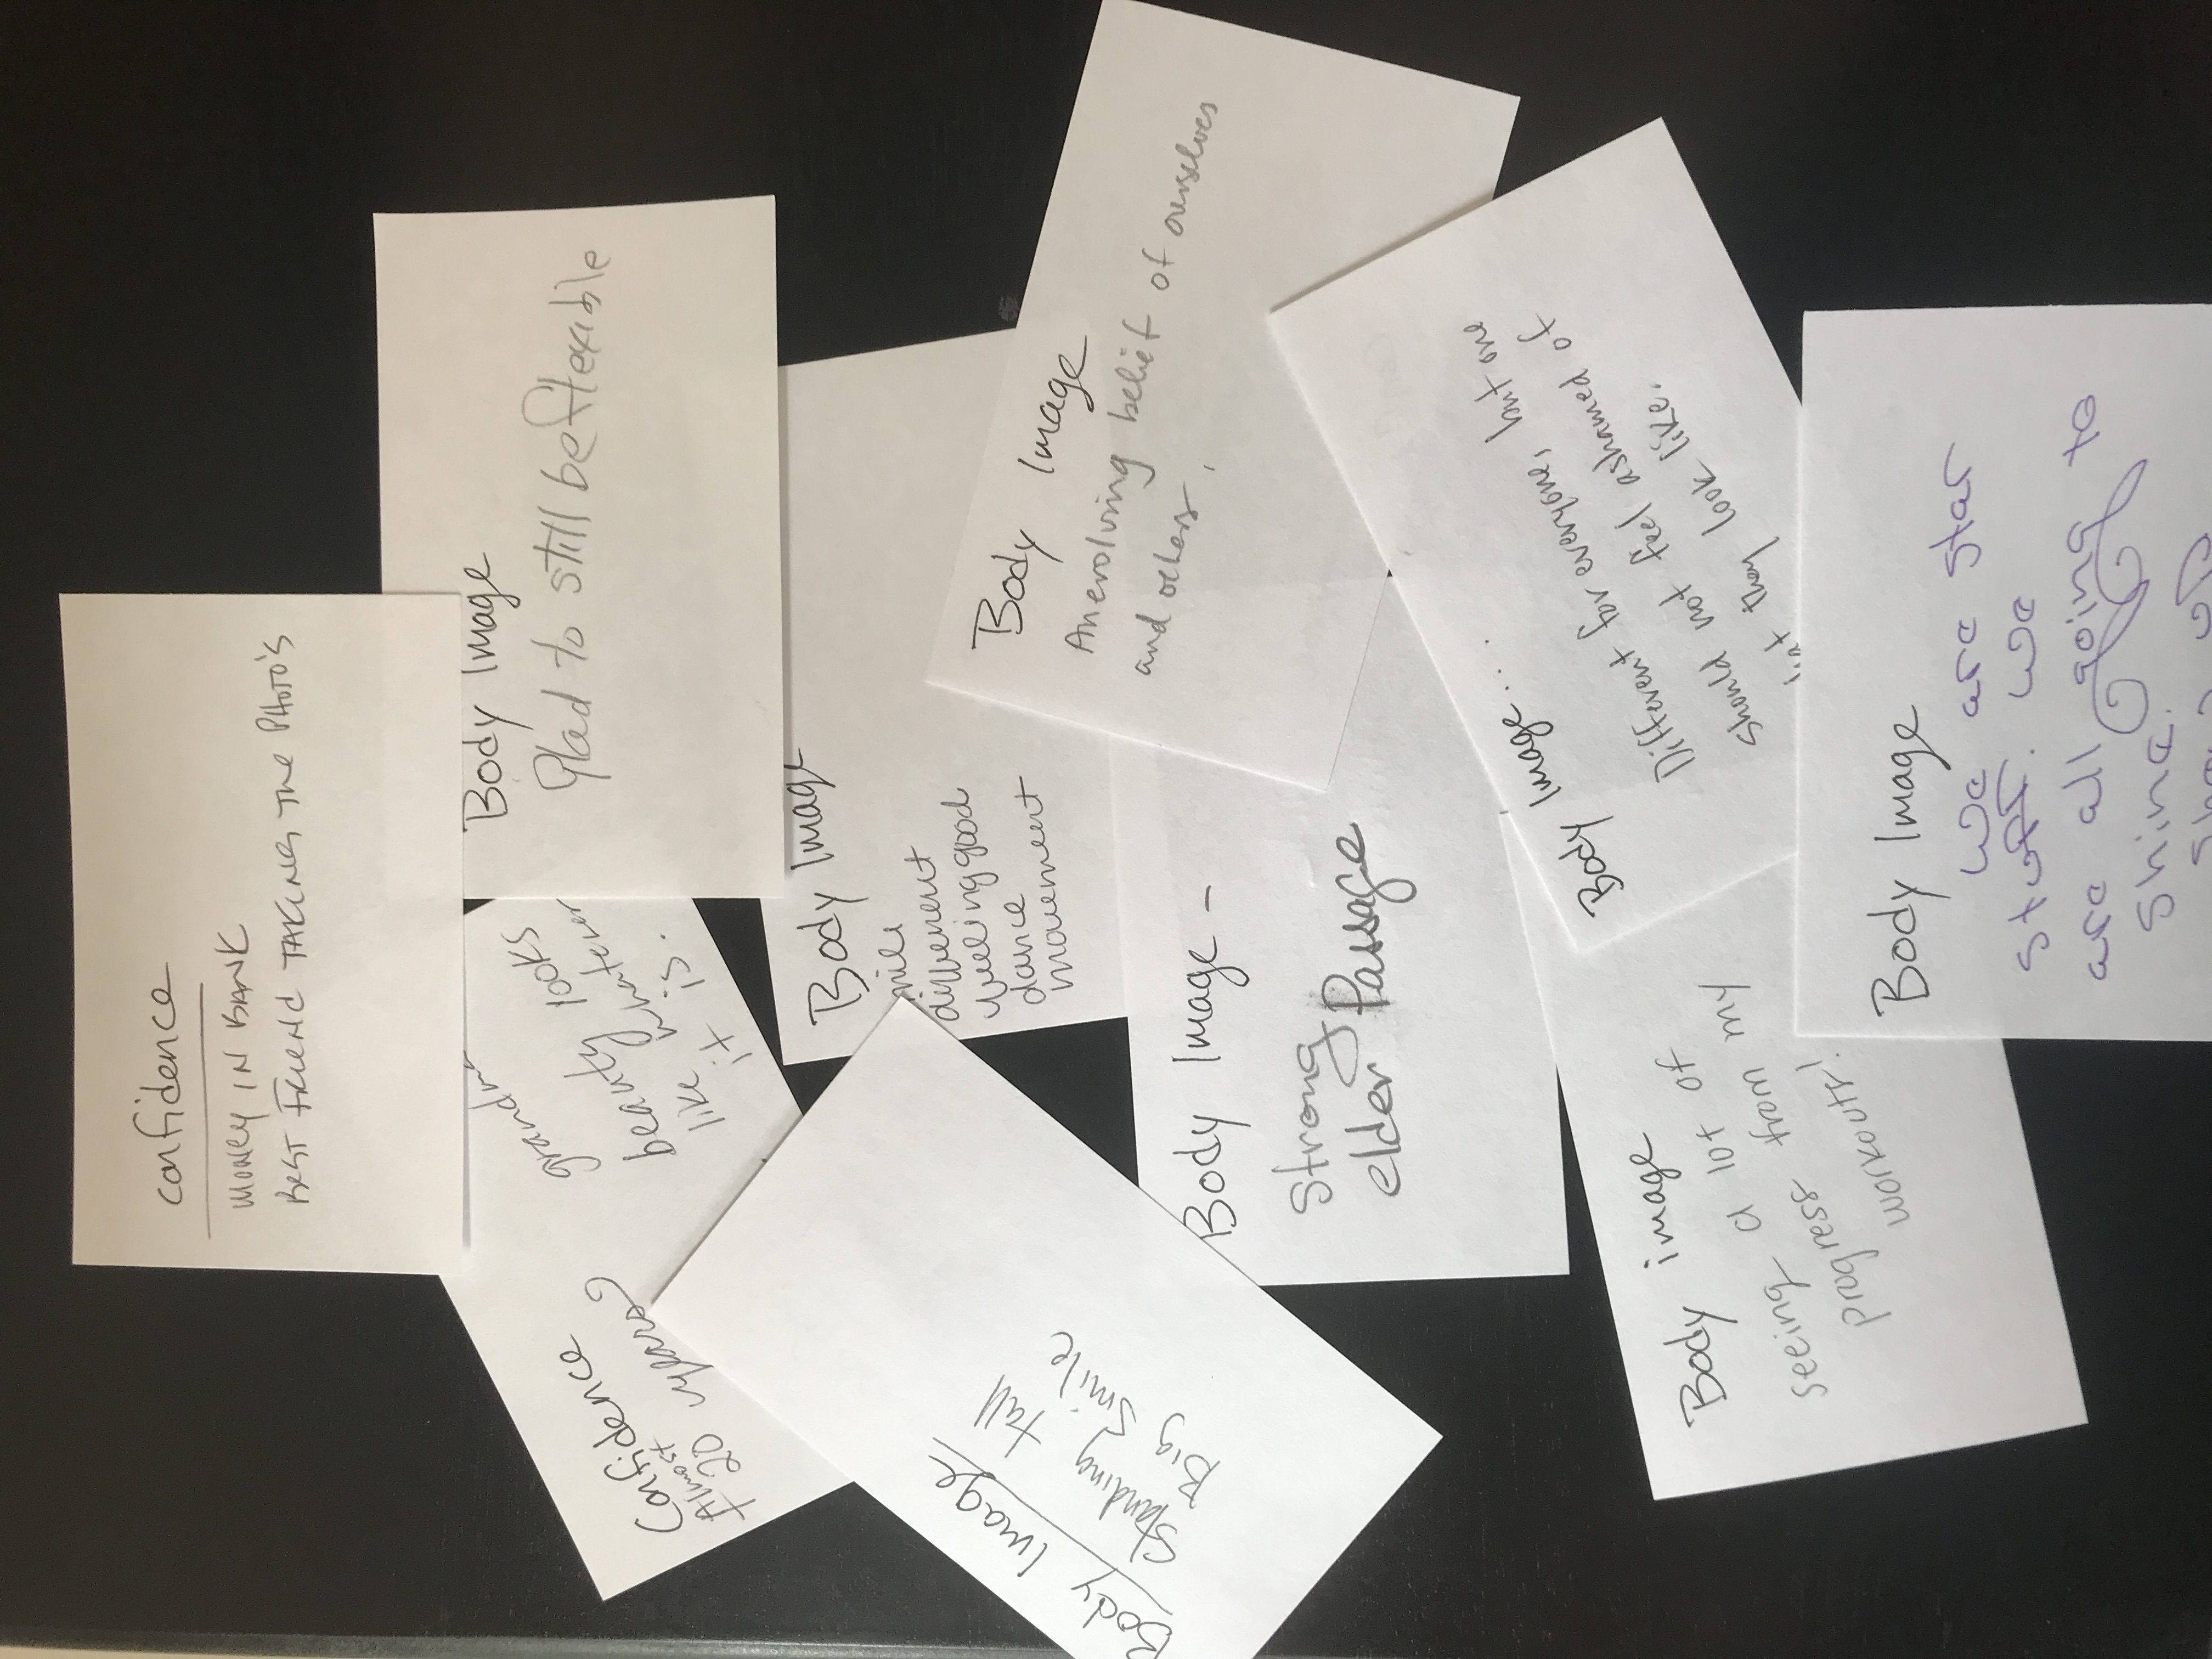 confidence
MONEY IN BANK
BEST FRIEND TAKING THE PHOTO'S
Confidence
Almost
+ 20 years
beauty looks
like whatever
it is.
Body Image
Glad to still be flexible
Body Image
different
feeling good
dance
movement
Body Image
Standing tall
Big Smile
Body Image
An evolving belief of ourselves
and others.
Body Image -
Strong
elder Passage
Body Image....
Different for everyone, but one
should not feel ashamed of
they look like.
Body image
seeing a lot of
progress from my
workouts!
Body Image
We are star
stuff. We
are all going to
shine.